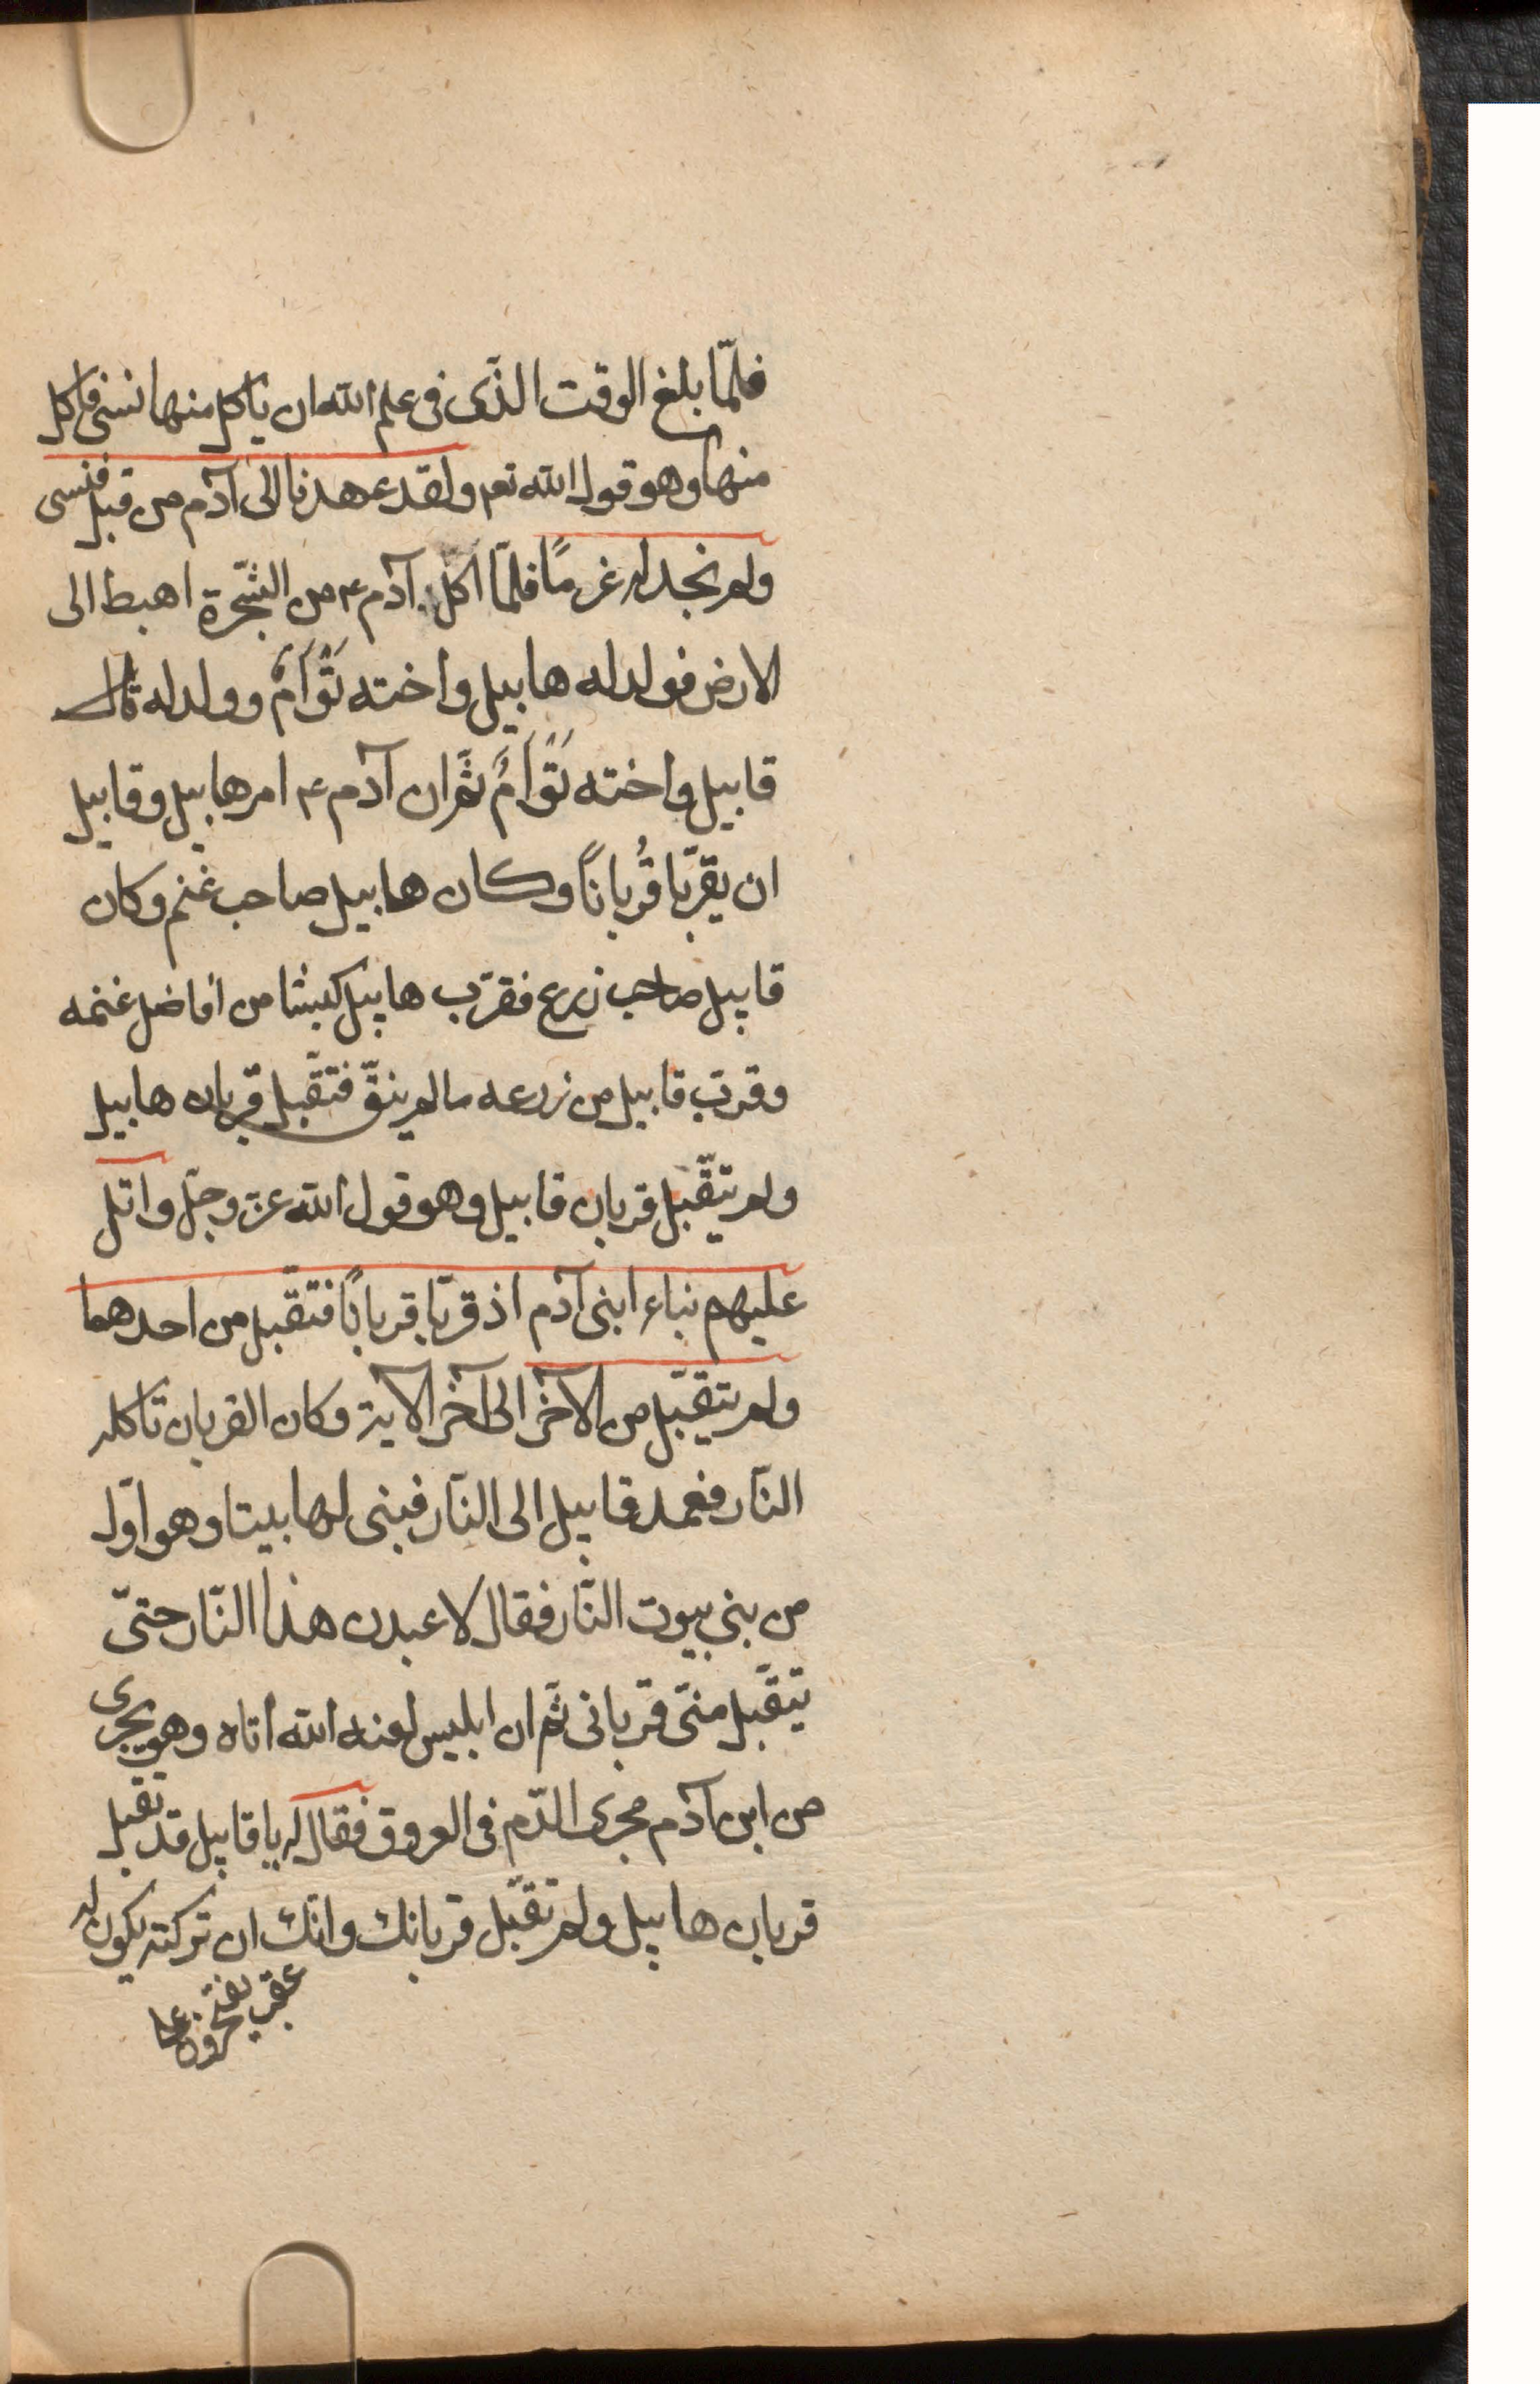 فلمّا بلغ الوقت الذّى فى علم الله ان ياكل منها نسى فاكل
منها وهو قول الله تعم ولقد عهدنا الى آدم من قبل فنسى
ولم نجد له غرمًا فلمّا اكل آدم ء من الشّجرة اهبط الى
الارض فولد له هابيل واخته تَوَّاَمٌ وولد له
قابيل واخته تَوَّاَمٌ ثمّ ان آدم ء امر هابيل وقابيل
ان يقرّبا قُربانًا وكان هابيل صاحب غنم وكان
قابيل صاحب زرع فقرّب هابيل كبشا من افاضل غنمه
وقرّب قابيل من زرعه ما لم ينقّ فتقّبل قربان هابيل
ولم يتقّبل قربان قابيل وهو قول الله عزّ وجلّ واتل
عليهم نباء ابنى آدم اذ قرّبا قربانًا فتقّبل من احدهما
ولم يتقّبل من الآخر الى آخر الآية وكان القربان تاكله
النّار فعمد قابيل الى النّار فبنى لها بيتا وهو اوّل
من بنى بيوت النّار فقال لاعبدن هذا النّار حتىّ
يتقّبل منىّ قربانى ثمّ ان ابليس لعنه الله اتاه وهو يجرى
من ابن آدم مجرى الدّم فى العروق فقال له يا قابيل قد تقبل
قربان هابيل ولم تقبّل قربانك وانّك ان تركته يكون له
عقب يفتخرون على